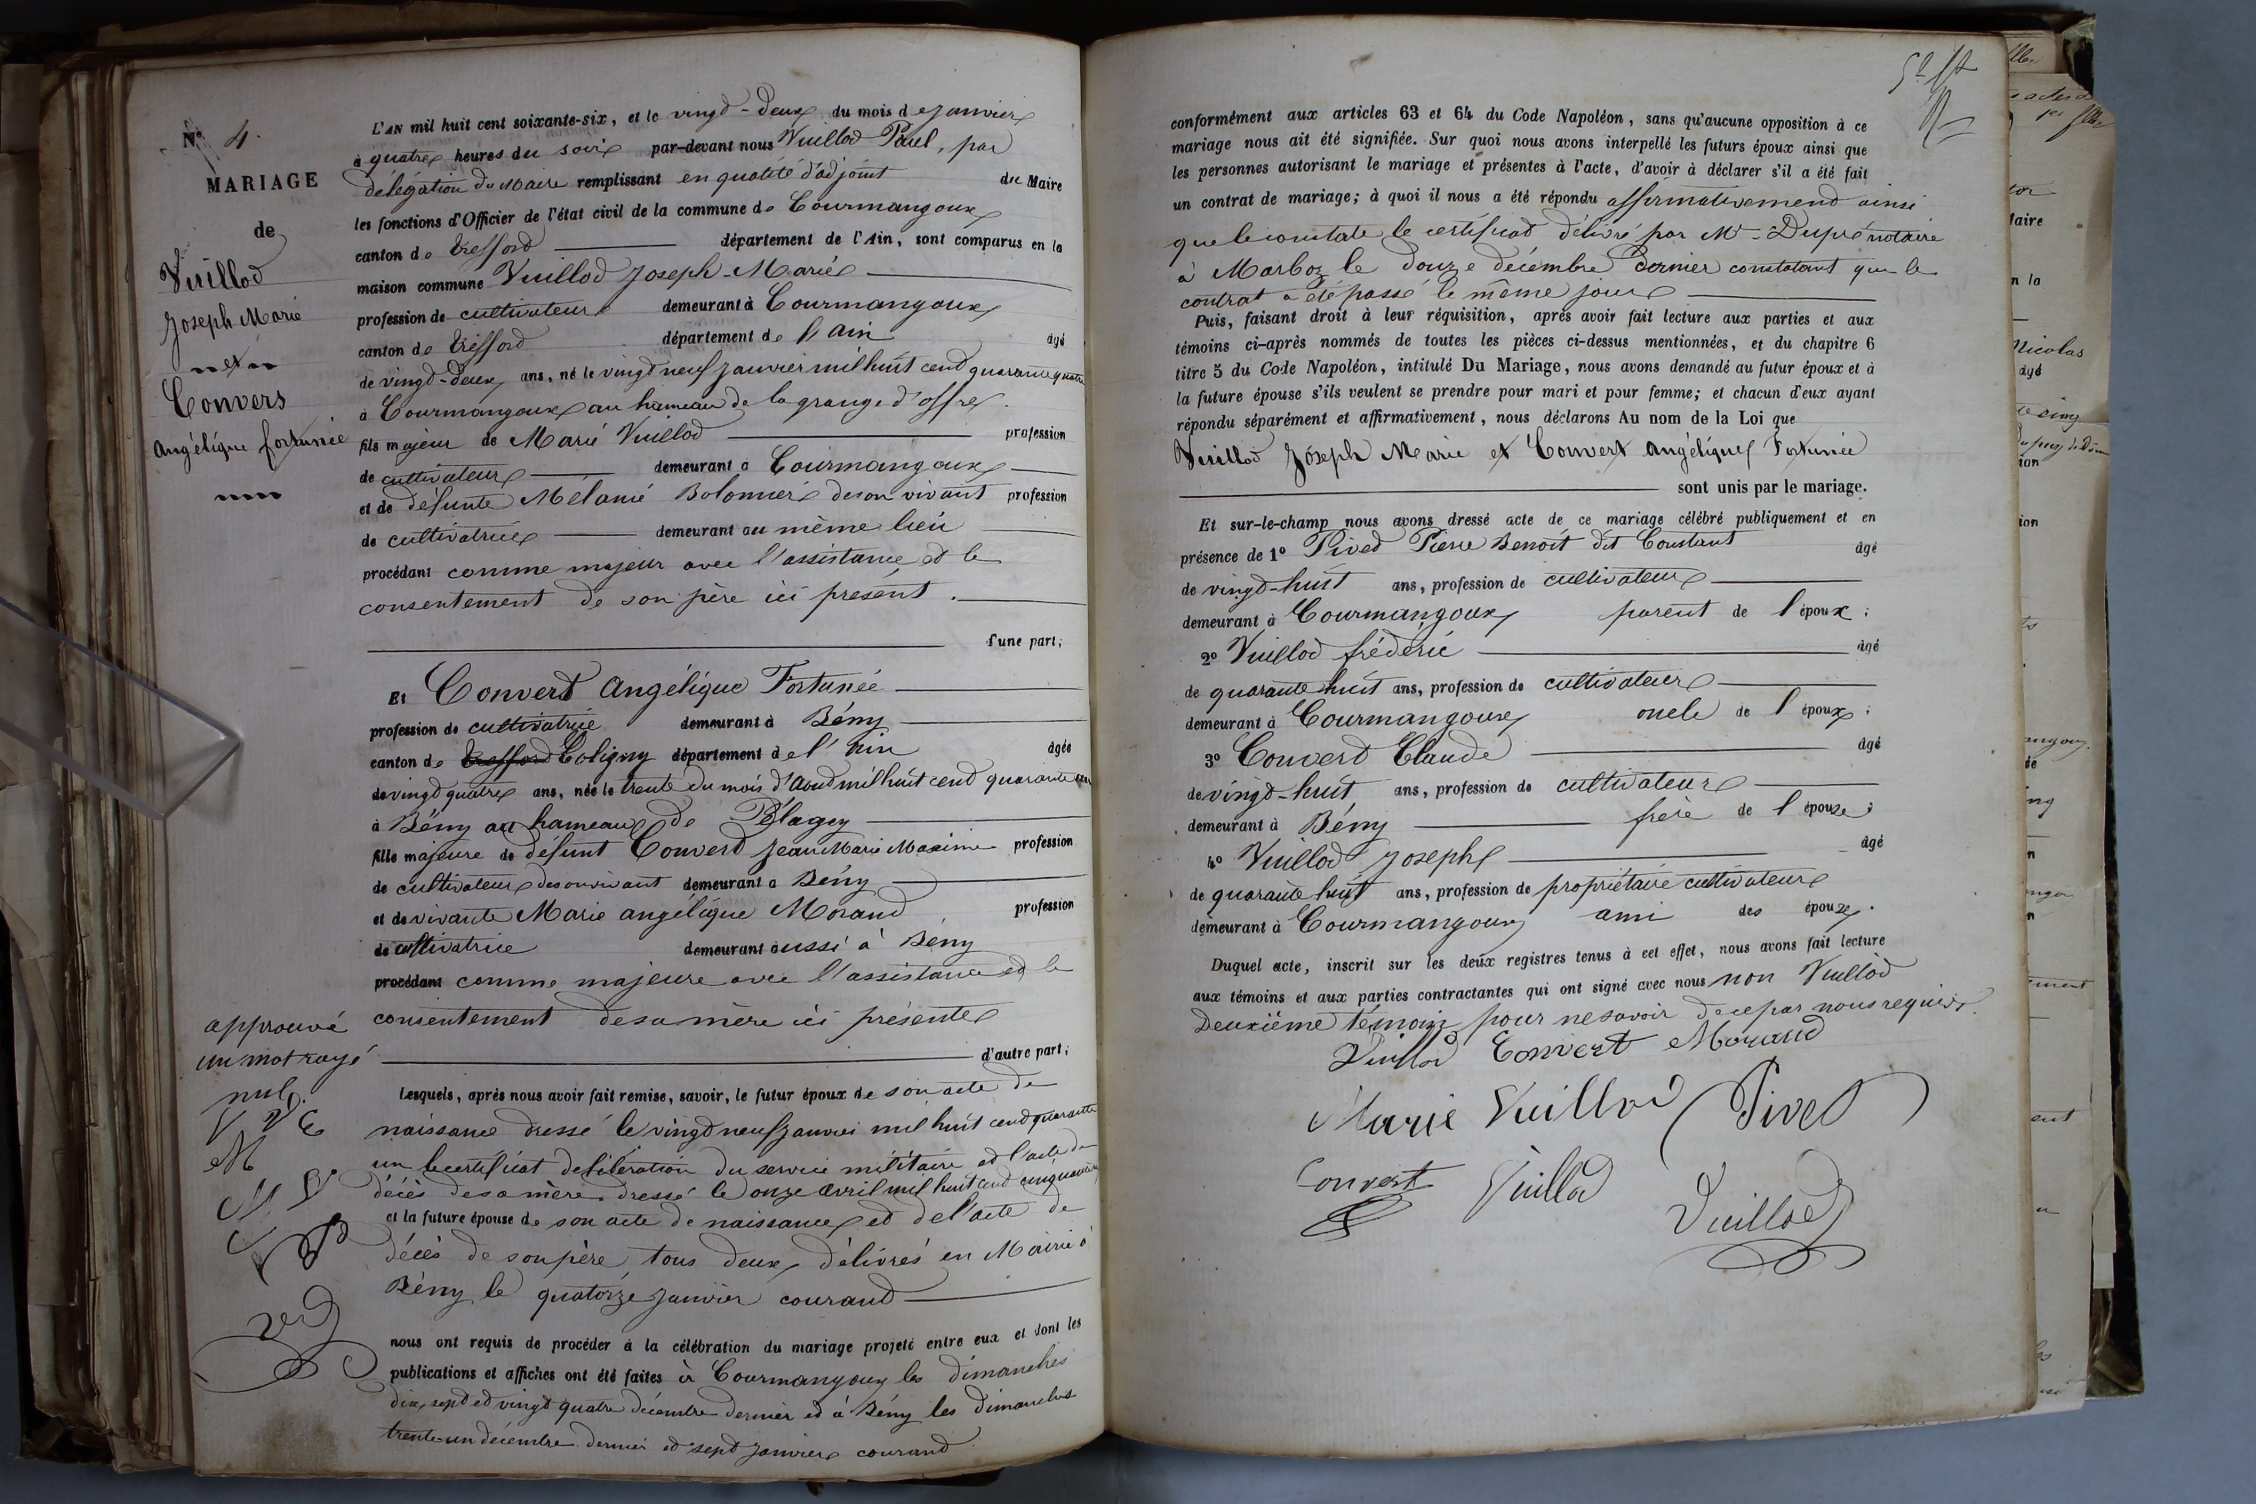 N° 4.
MARIAGE
de
Vuillod
Joseph Marie
et
Convers
Angélique fortunée
L'AN mil huit cent soixante-six, et le vingt-deux du mois de Janvier
à quatre heures du soir par-devant nous Vuillod Paul, par
délégation du Maire remplissant en qualité d'adjoint du Maire
les fonctions d'Officier de l'état civil de la commune de Courmangoux
canton de Treffort département de l'Ain, sont comparus en la
maison commune Vuillod Joseph-Marie
profession de cultivateur demeurant à Courmangoux
canton de Treffort département de l'ain âgé
de vingt-deux ans, né le vingt neuf janvier mil huit cent quarante quatre
à Courmangoux au hameau de la grange d'
fils majeur de Marie Vuillod profession
de cultivateur demeurant à Courmangoux
et de défunte Mélanie Bolomier de son vivant profession
de cultivatrice demeurant au même lieu
procédant comme majeur avec l'assistance et le
consentement de son père ici présent.
d'une part;
Et Convert Angélique Fortunée
profession de cultivatrice demeurant à Bény
canton de Treffort Coligny département de l'Ain âgée
de vingt quatre ans, née le trente du mois d'Aout mil huit cent quarante
à Bény au hameau de Pélagey
fille majeure de défunt Convert Jean Marie Maxime profession
de cultivateur de son vivant demeurant à Bény
et de vivante Marie angélique Morand profession
de cultivatrice demeurant aussi à Bény
procédant comme majeure avec l'assistance et le
consentement de sa mère ici présente
d'autre part;
approuvé
un mot rayé
nul.
Lesquels, après nous avoir fait remise, savoir, le futur époux de son acte de
naissance dressé le vingt neuf janvier mil huit cent quarante
un le certificat de libération du service militaire et l'acte de
décès de sa mère dressé le onze avril mil huit cent cinquante
et la future épouse de son acte de naissance et de l'acte de
décès de son père tous deux délivrés en Mairie à
Bény le quatorze janvier courant
nous ont requis de procéder à la célébration du mariage projeté entre eux et dont les
publications et affiches ont été faites à Courmangoux les dimanches
dix sept et vingt quatre décembre dernier et à Bény les dimanches
trente-un décembre dernier et sept janvier courant
conformément aux articles 63 et 64 du Code Napoléon, sans qu'aucune opposition à ce
mariage nous ait été signifiée. Sur quoi nous avons interpellé les futurs époux ainsi que
les personnes autorisant le mariage et présentes à l'acte, d'avoir à déclarer s'il a été fait
un contrat de mariage; à quoi il nous a été répondu affirmativement ainsi
que le constate le certificat délivré par Me Dupré notaire
à Marboz le douze décembre dernier constatant que le
contrat a été passé le même jour
Puis, faisant droit à leur réquisition, après avoir fait lecture aux parties et aux
témoins ci-après nommés de toutes les pièces ci-dessus mentionnées, et du chapitre 6
titre 5 du Code Napoléon, intitulé Du Mariage, nous avons demandé au futur époux et à
la future épouse s'ils veulent se prendre pour mari et pour femme; et chacun d'eux ayant
répondu séparément et affirmativement, nous déclarons Au nom de la Loi que
Vuillod Joseph Marie et Convert Angélique Fortunée
sont unis par le mariage.
Et sur-le-champ nous avons dressé acte de ce mariage célébré publiquement et en
présence de 1° Pivet Pierre Benoit dit Constant âgé
de vingt-huit ans, profession de cultivateur
demeurant à Courmangoux parent de l'époux;
2° Vuillod frédéric âgé
de quarante huit ans, profession de cultivateur
demeurant à Courmangoux oncle de l'époux;
3° Convert Claude âgé
de vingt-huit ans, profession de cultivateur
demeurant à Bény frère de l'épouse;
4° Vuillod Joseph âgé
de quarante huit ans, profession de propriétaire cultivateur
demeurant à Courmangoux ami des époux.
Duquel acte, inscrit sur les deux registres tenus à cet effet, nous avons fait lecture
aux témoins et aux parties contractantes qui ont signé avec nous non Vuillod
Deuxième témoin pour ne savoir de ce par nous requis.
Vuillod Convert Morand
Marie Vuillod Pivet
Convert Vuillod Vuillod